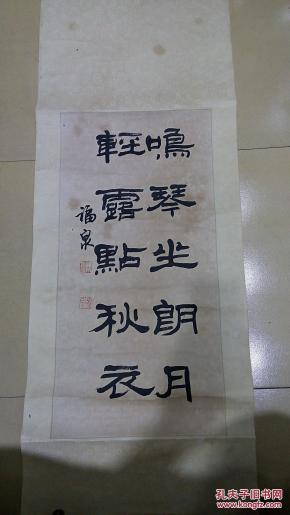 鳴琴坐朗月
輕露點秋衣
福泉
孔夫子旧书网